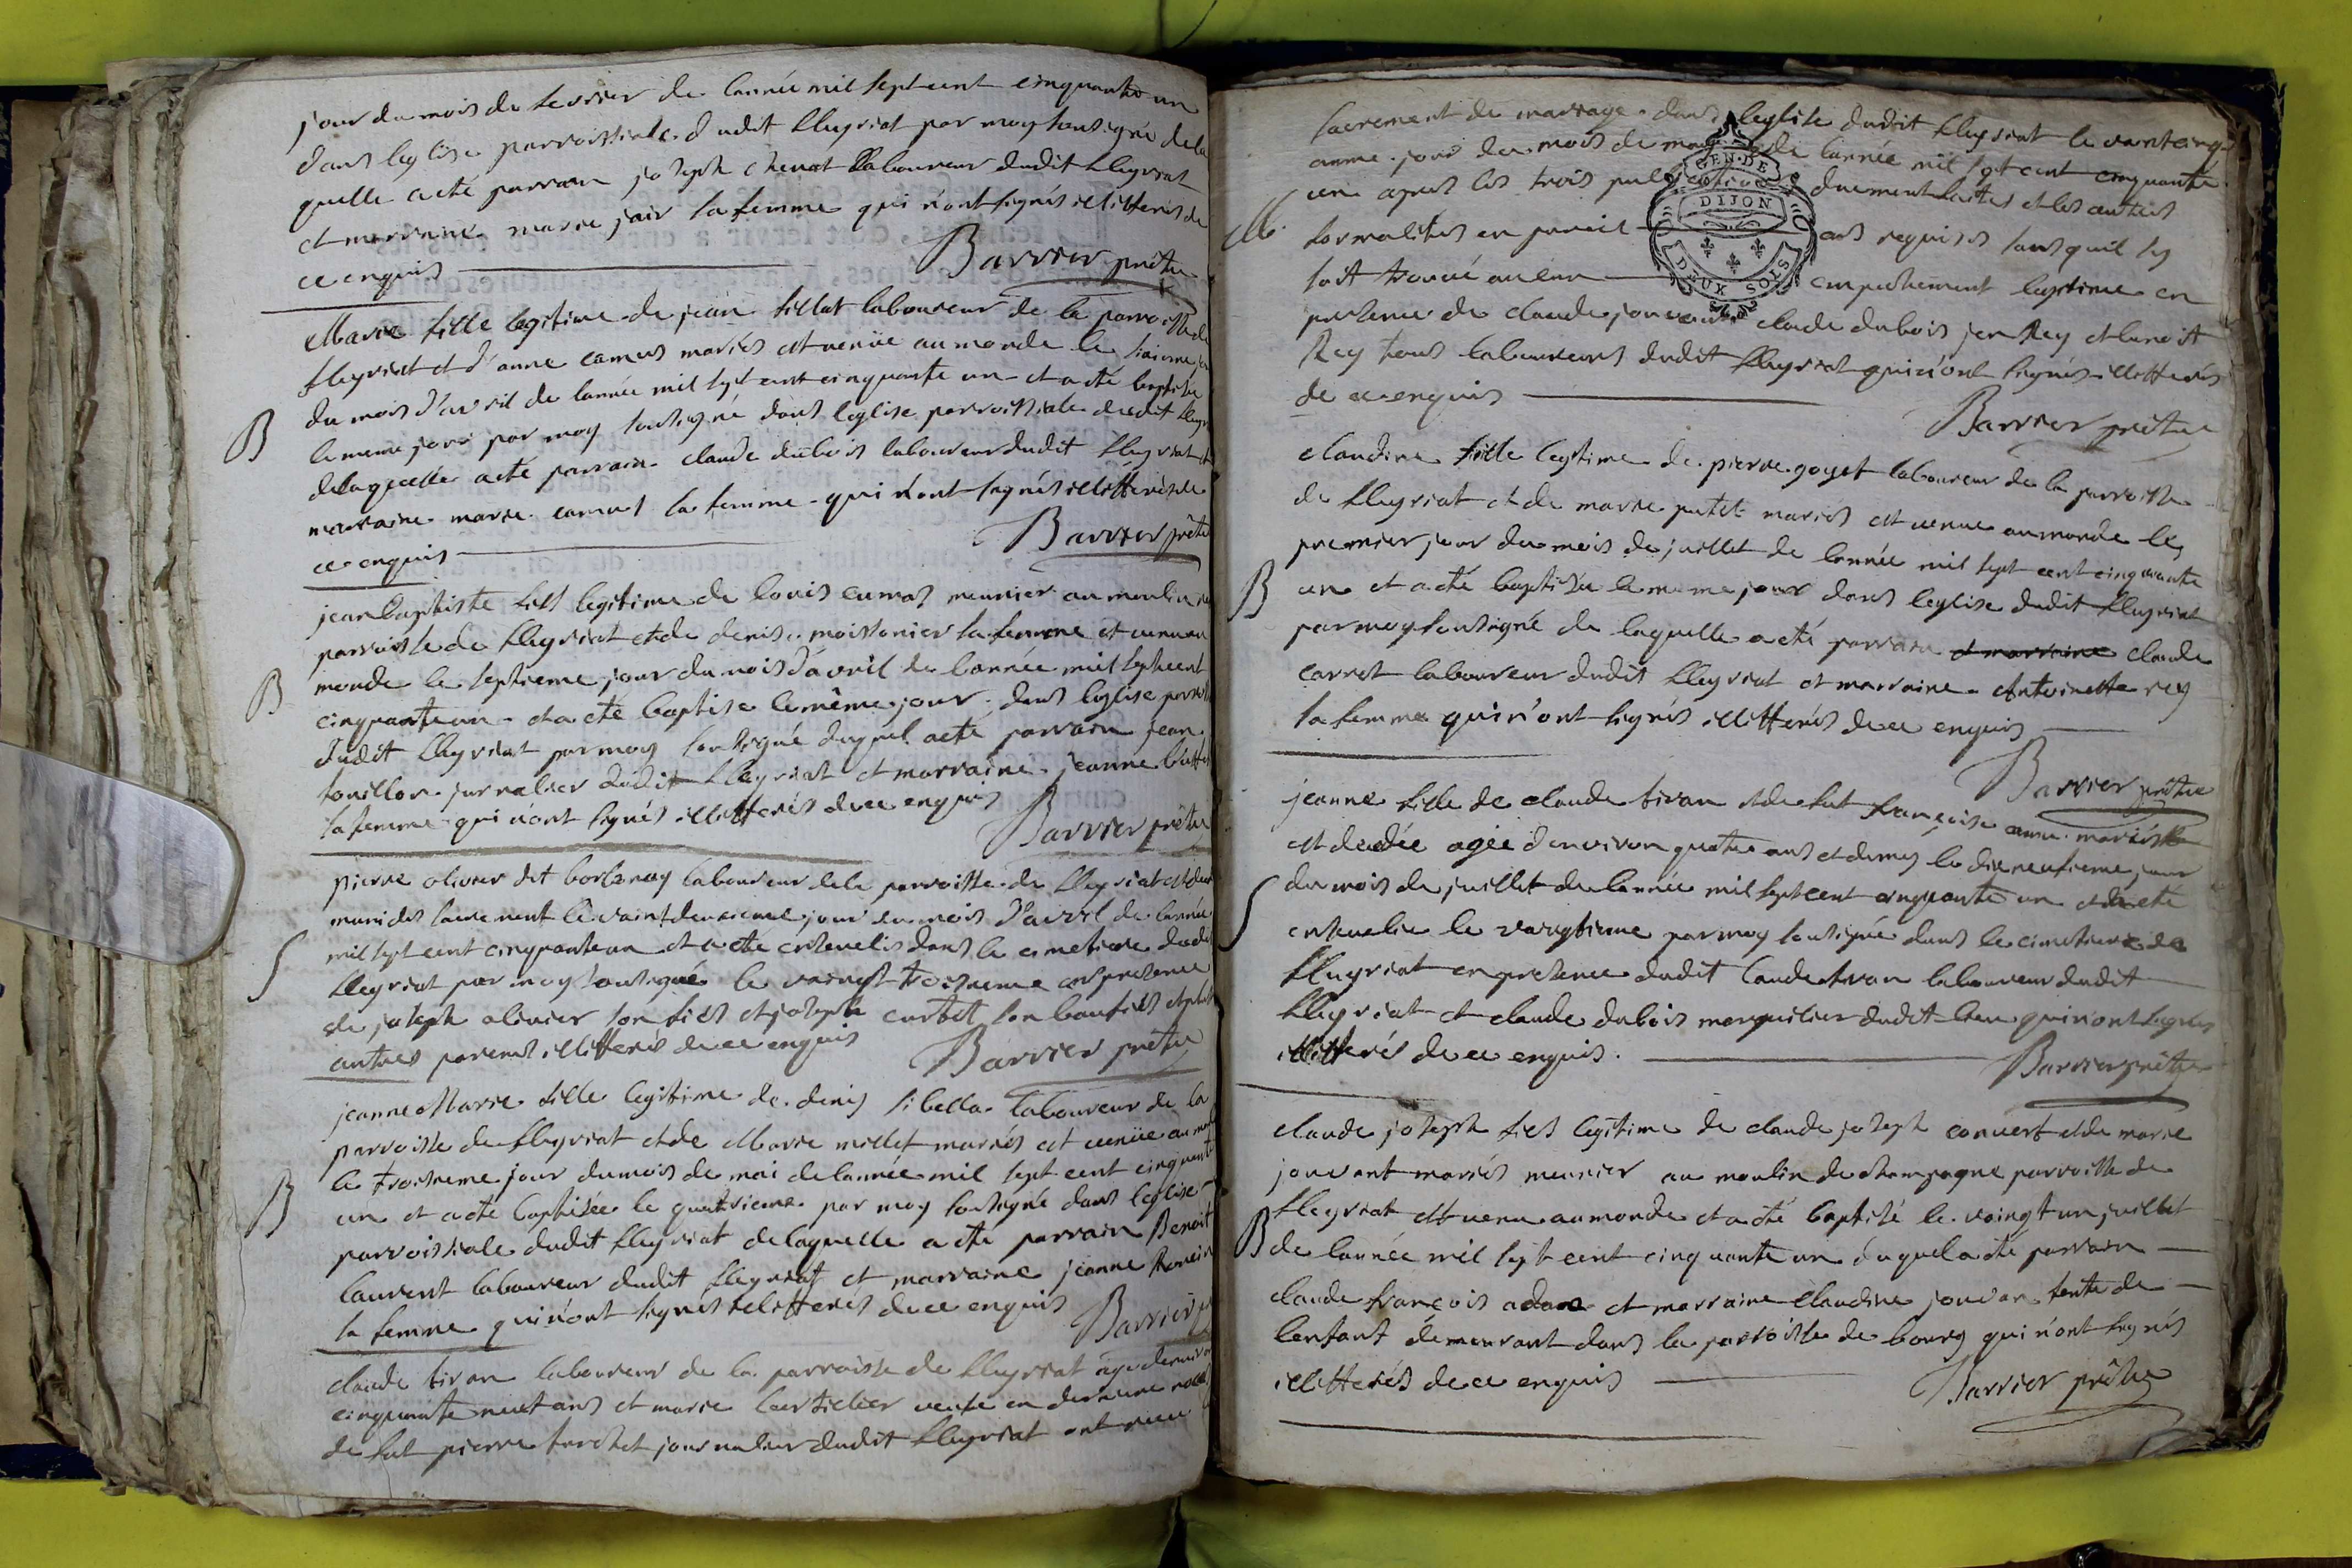 jour du mois de fevrier de lannée mil sept cent cinquante un
dans leglise parroissiale dudit fleyriat par moy soussigné de la
quelle a eté parrain joseph chenat laboureur dudit fleyriat
et marraine marie jair sa femme qui n'ont signés illitterés de
ce enquis
Barrier prêtre
Marie fille legitime de jean sillat laboureur de la parroisse de
fleyriat et d'anne camus mariés est venüe au monde le
du mois d'avril de lannée mil sept cent cinquante un et a eté baptisée
B
le meme jour par moy soussigné dans leglise parroissiale dudit
de laquelle a eté parrain claude dubois laboureur dudit fleyriat et
marraine marie camus sa femme qui n'ont signés illitterés de
ce enquis
Barrier prêtre
jean baptiste fils legitime de louis cumas meunier au moulin
parroisse de fleyriat et de denise moissonier sa femme est venu au
monde le septieme jour du mois d'avril de lannée mil sept cent
B
cinquante un et a eté baptisé le même jour dans leglise
dudit fleyriat par moy soussigné duquel a eté parrain jean
touillon jurnalier dudit fleyriat et marraine jeanne
sa femme qui n'ont signés illitterés de ce enquis
Barrier prêtre
pierre olivier dit laboureur de la parroisse de fleyriat est
muni des sacrement le vaint deuxieme jour du mois d'avril de lannée
mil sept cent cinquante un et a eté ensevelis dans le cimetiere dudit
S
fleyriat par moy soussigné le vaingt troisieme en presence
de joseph olivier son fils et joseph curtet son beaufils et
autres parens illitterés de ce enquis
Barrier prêtre
jeanne Marie fille legitime de denis sibella laboureur de la
parroisse de fleyriat et de Marie millet mariés est venüe au
le troisieme jour du mois de mai de lannée mil sept cent cinquante
B
un et a eté baptisée le quatrieme par moy soussigné dans leglise
parroissiale dudit fleyriat de laquelle a eté parrain Benoit
laurent laboureur dudit fleyriat et marraine jeanne
sa femme qui n'ont signés illitterés de ce enquis
Barrier
claude tivan laboureur de la parroisse de fleyriat agé denviron
cinquante neuf ans et marie veufe en derniere
de fut pierre journalier dudit fleyriat ont recu
sacrement de mariage dans leglise dudit fleyriat le
jour du mois de de lannée mil sept cent cinquante
un apres les trois duement faites et les autres
M
formalités en pareil cas requises sans quil sy
soit trouvé aucun empechement legitime en
presence de claude claude dubois jean Rey et benoit
Rey tous laboureurs dudit fleyriat qui n'ont signés illitterés
de ce enquis
Barrier prêtre
GEN. DE
DIJON
DEUX SOLS
claudine fille legitime de pierre goyet laboureur de la parroisse
de fleyriat et de marie putet mariés est venue au monde le
premier jour du mois de juillet de lannée mil sept cent cinquante
B
un et a eté baptisée le meme jour dans leglise dudit fleyriat
par moy soussigné de laquelle a eté parrain et marraine claude
carret laboureur dudit fleyriat et marraine Antoinette rey
sa femme qui n'ont signés illitterés de ce enquis
Barrier prêtre
jeanne fille de claude tivan et de fut françoise mariés
est decedée agée d'environ quatre ans et demy le dixneufieme jour
du mois de juillet de lannée mil sept cent cinquante un et a eté
S
ensevelie le vaingtieme par moy soussigné dans le cimetiere de
fleyriat en presence dudit Claude tivan laboureur dudit
fleyriat et claude dubois marguilier dudit lieu qui n'ont signés
illitterés de ce enquis.
Barrier prêtre
claude joseph fils legitime de claude joseph convert et de marie
jouvant mariés meunier au moulin de champagne parroisse de
fleyriat est venu au monde et a eté baptisé le vaingt un juillet
B
de lannée mil sept cent cinquante un duquel a été parrain
claude françois adam et marraine claudine jouvan tente de
lenfant demeurant dans la parroisse de bourg qui n'ont signés
illitterés de ce enquis
Barrier prêtre